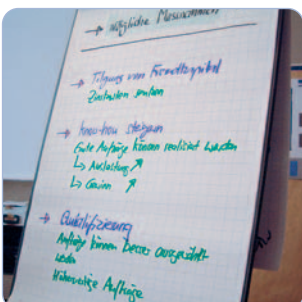 → mögliche Massnahmen
→ Tilgung von Fremdkapital
Zinskosten senken
→ Innovation steigern
Gute Aufträge können realisiert werden
↳ Auslastung ↗
↳ Gewinn ↗
→ Qualifizierung
Aufträge können besser ausgewählt
werden
Höherwertige Aufträge